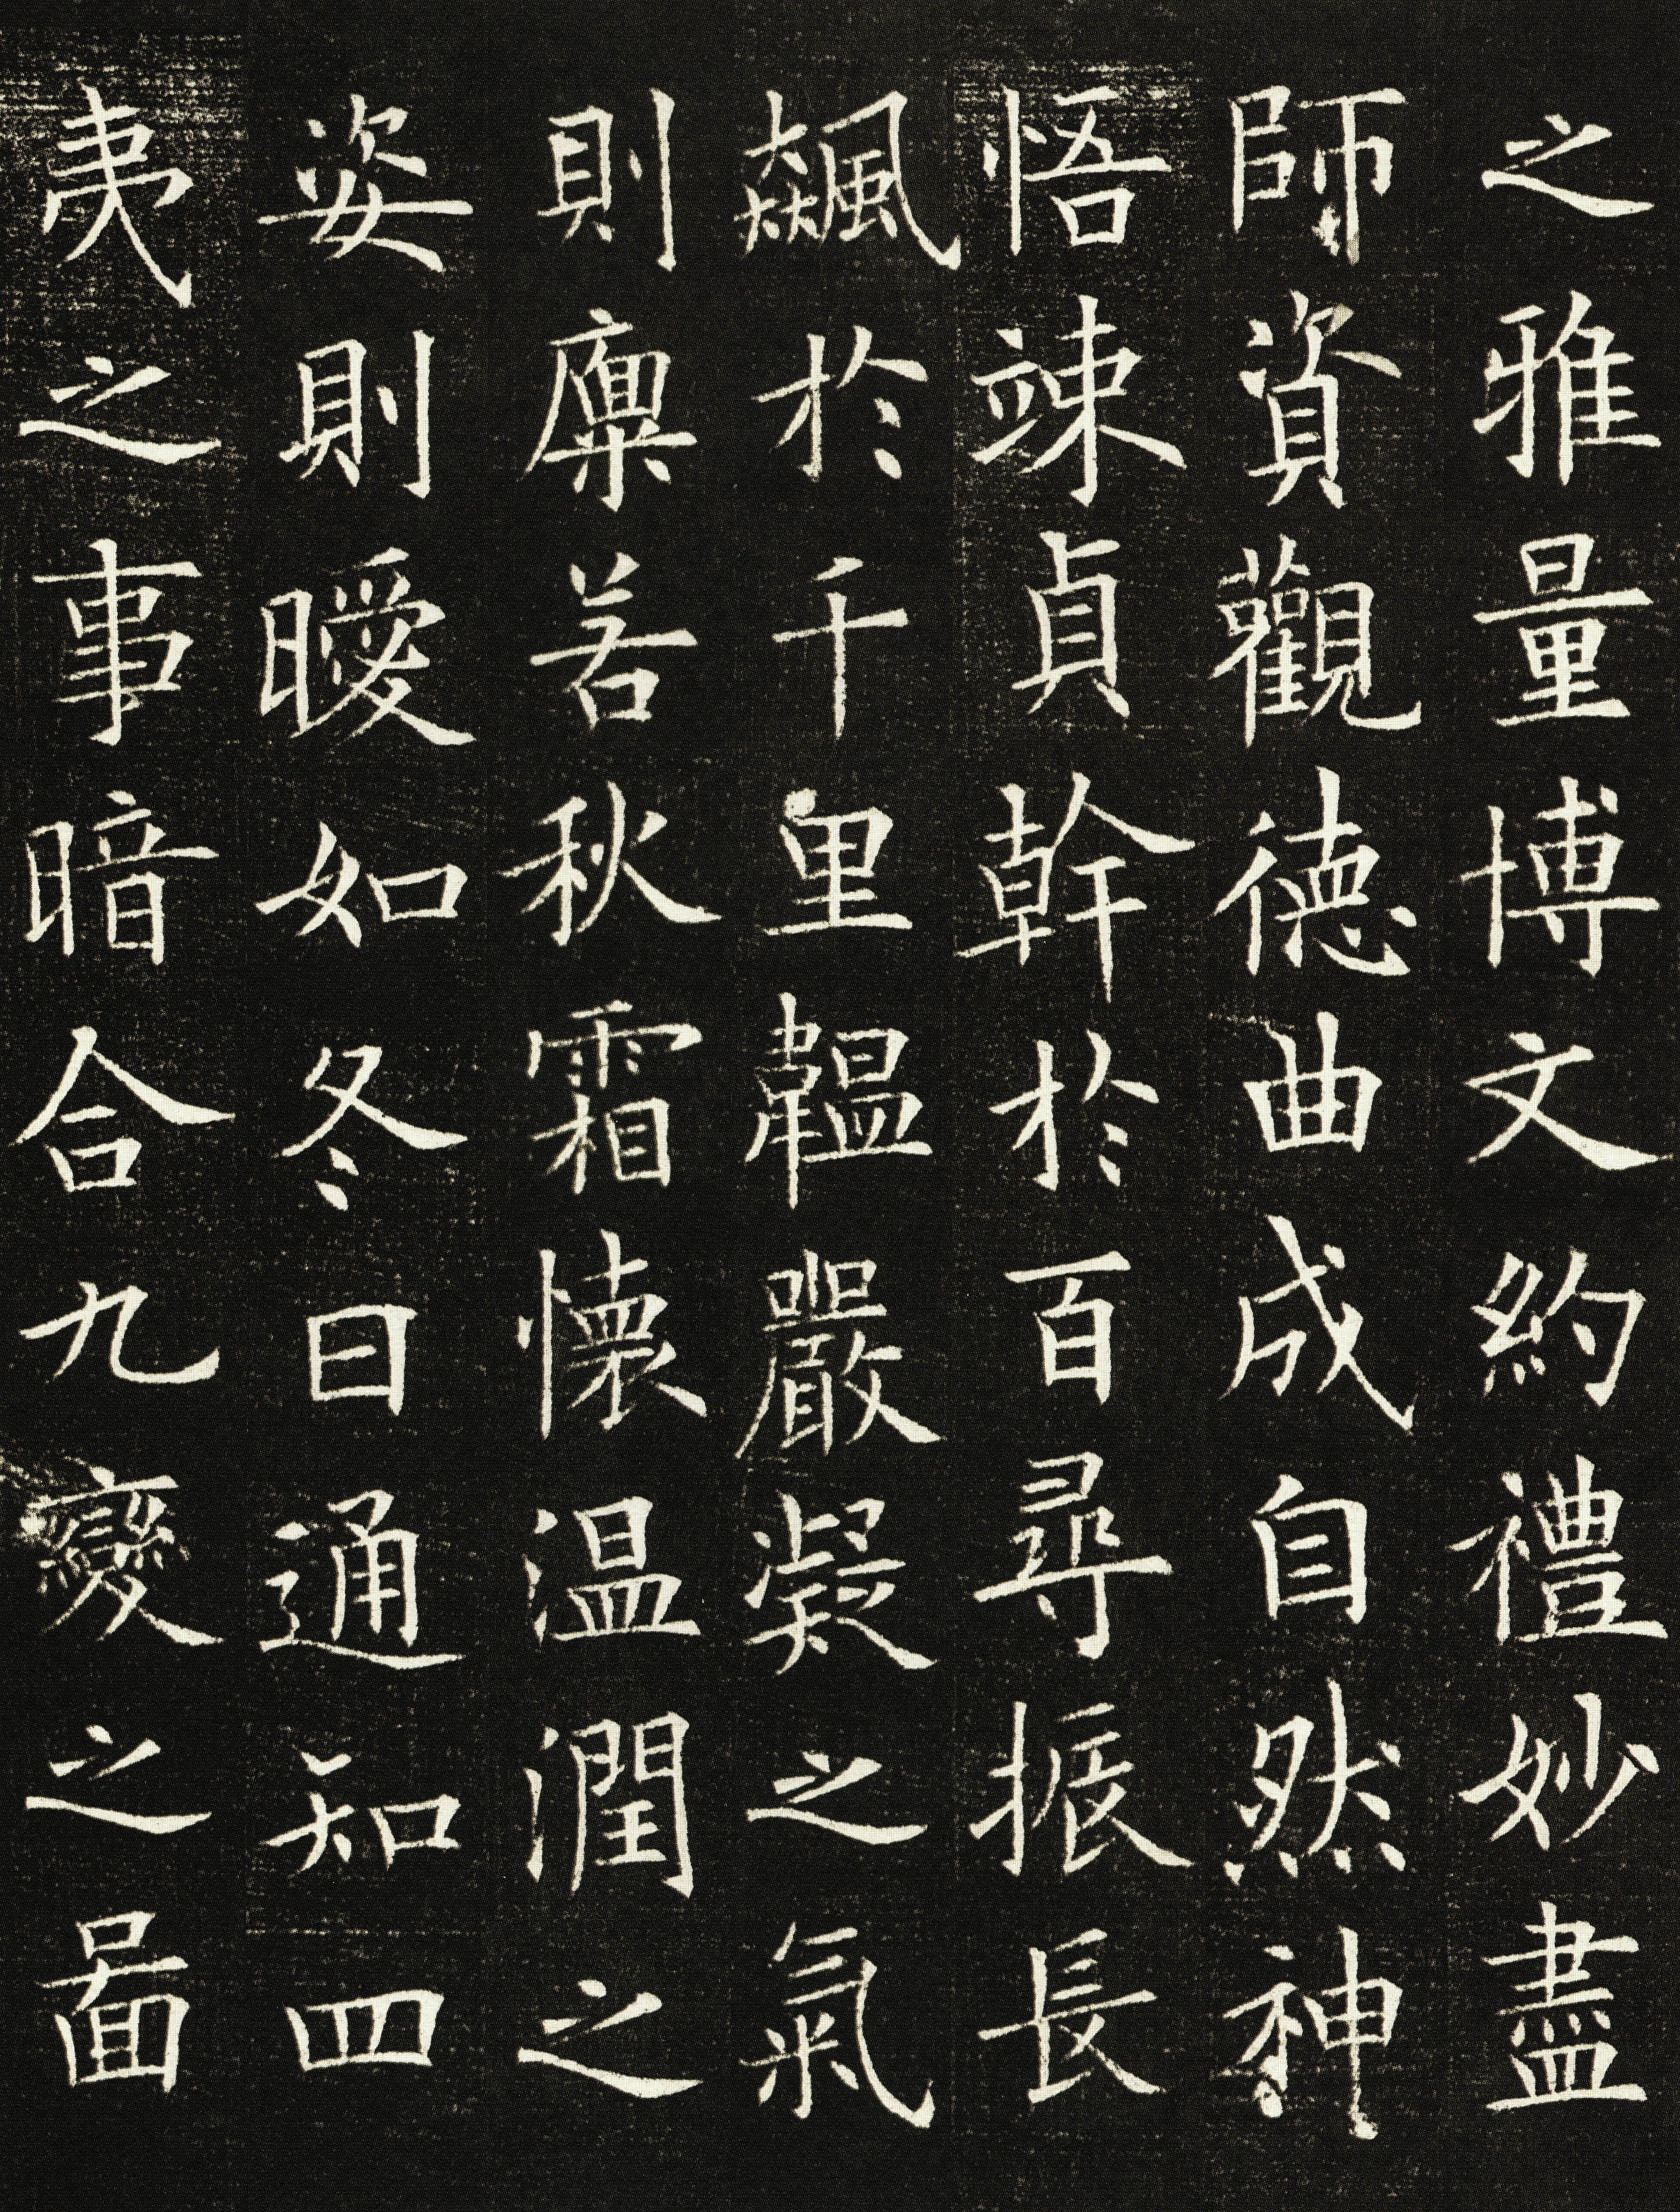 之雅量博文約禮妙盡
師資觀德曲成自然神
悟竦貞幹於百尋振長
飆於千里韞嚴凝之氣
則廪若秋霜懷温潤之
姿則曖如冬日通知四
夷之事暗合九變之啚